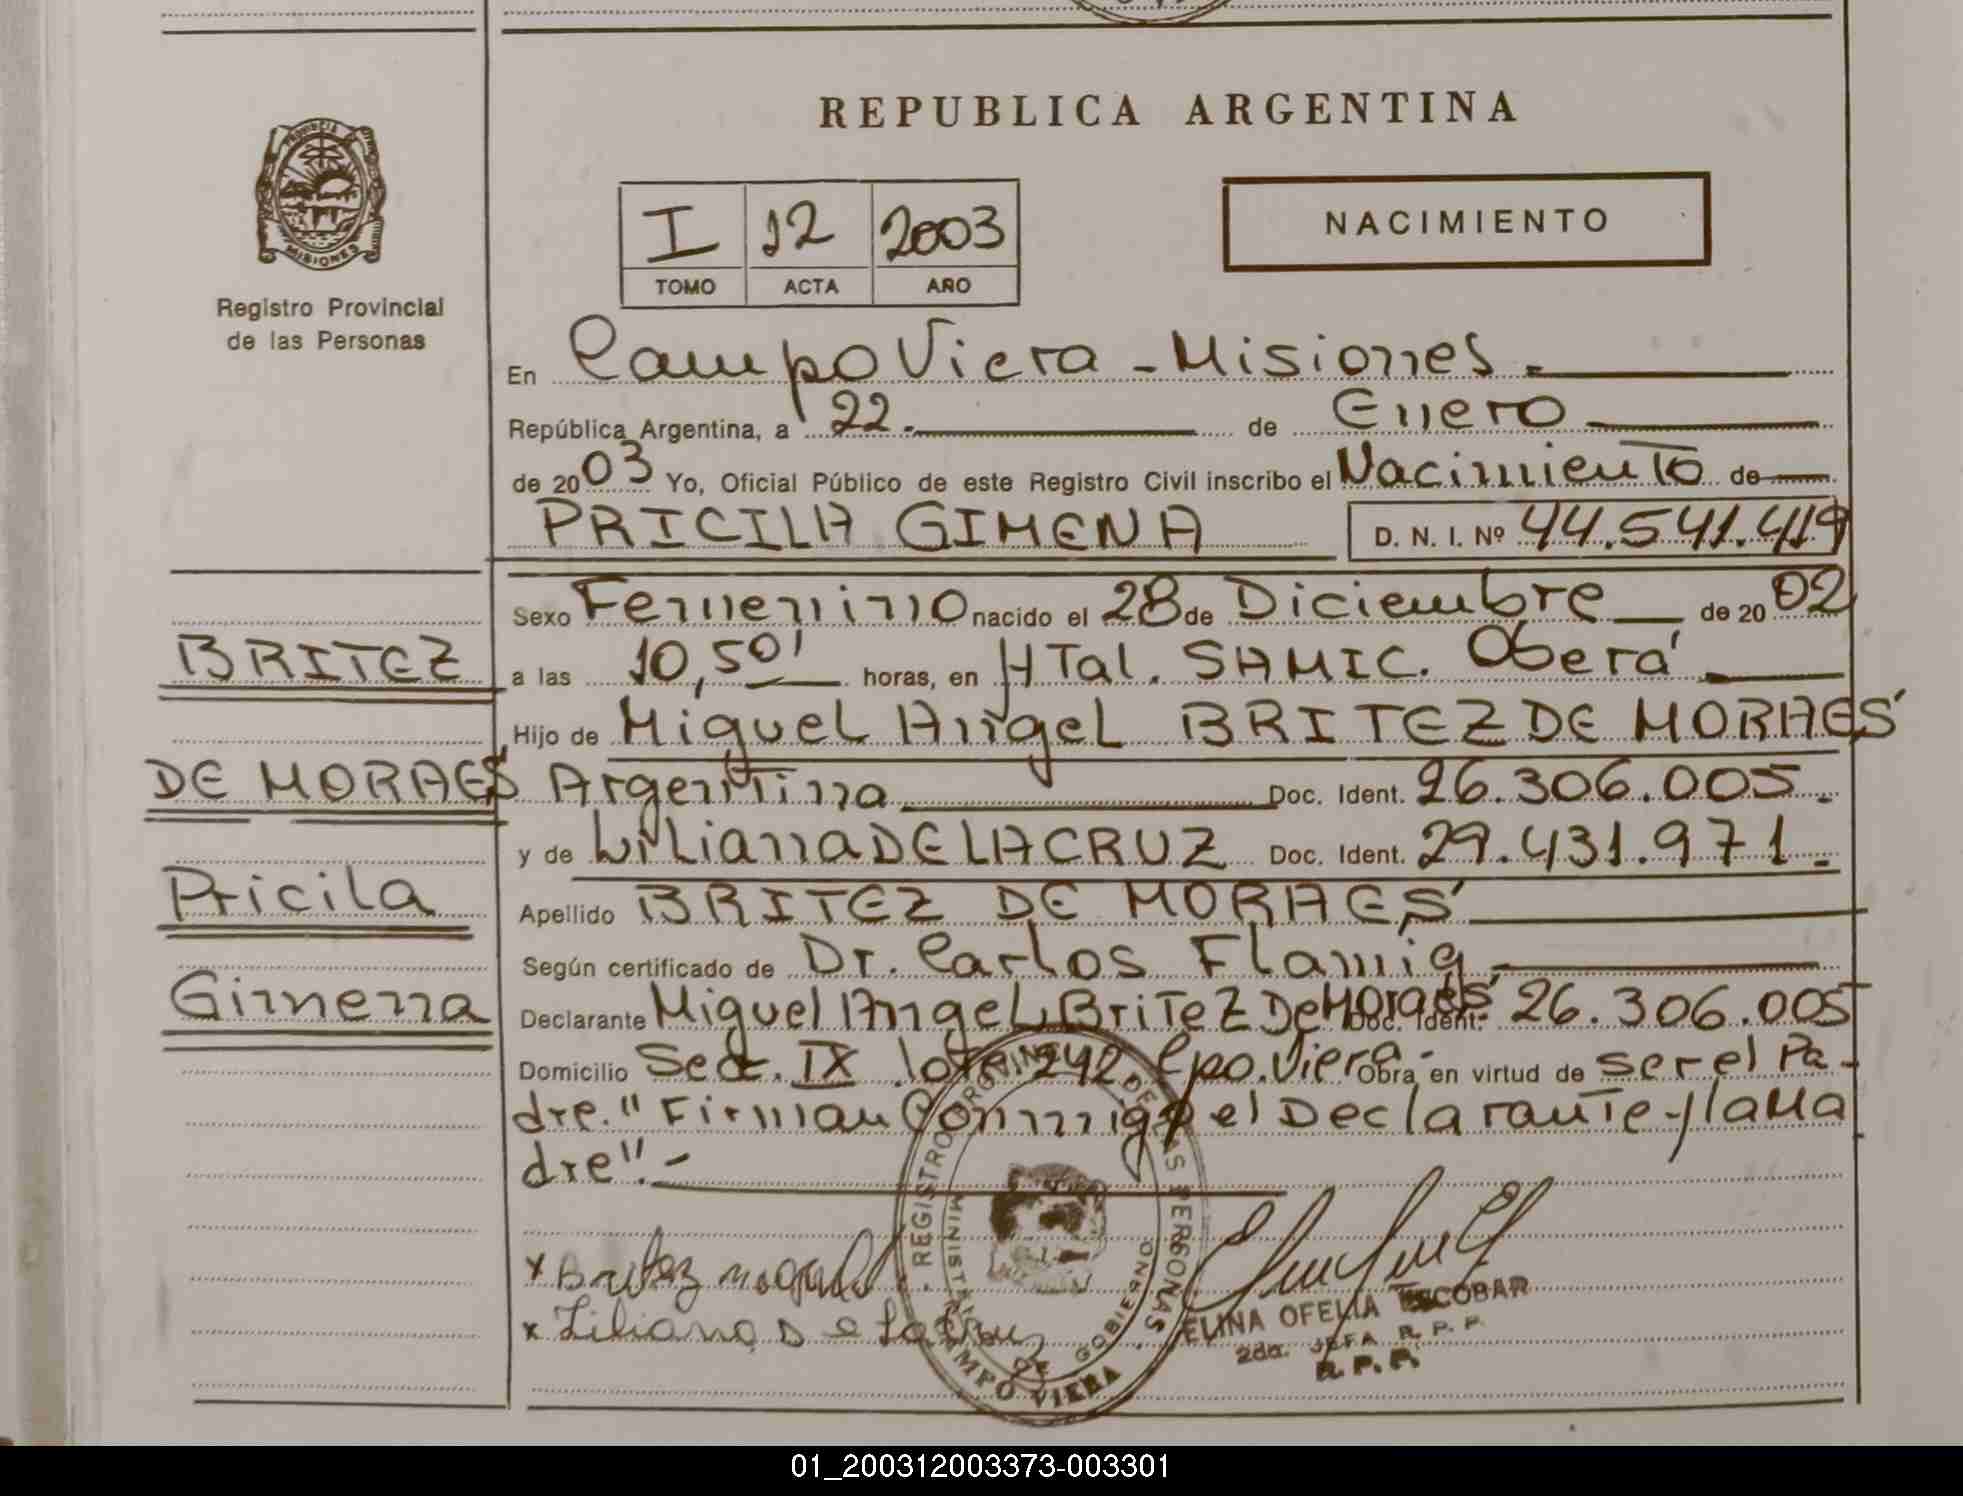 REPUBLICA ARGENTINA
PROVINCIA
MISIONES
Registro Provincial
de las Personas
I 12 2003
TOMO ACTA AÑO
NACIMIENTO
En Campo Viera - Misiones.
República Argentina, a 22. de Enero
de 2003 Yo, Oficial Público de este Registro Civil inscribo el Nacimiento de
PRICILA GIMENA D. N. I. Nº 44.541.419
Sexo Femenino nacido el 28 de Diciembre de 2002
BRITEZ
a las 10,50' horas, en HTal. SAMIC. Oberá
Hijo de Miguel Angel BRITEZ DE MORAES'
DE MORAES'
Argentina Doc. Ident. 26.306.005.
y de Liliana DE LA CRUZ Doc. Ident. 29.431.971.
Pricila
Apellido BRITEZ DE MORAES'
Según certificado de Dr. Carlos Flamig
Gimena
Declarante Miguel Angel Britez De Moraes' Doc. Ident. 26.306.005
Domicilio Secc. IX lote 242 Cpo. Viera - Obra en virtud de ser el Pa-
dre." Firman Conmigo el Declarante y la Ma
dre".-
x Britez Miguel
x Liliana De La Cruz
REGISTRO PROVINCIAL DE LAS PERSONAS
MINISTERIO DE GOBIERNO
CAMPO VIERA
ELINA OFELIA ESCOBAR
2da. JEFA R. P. P.
R. P. P.
01_200312003373-003301